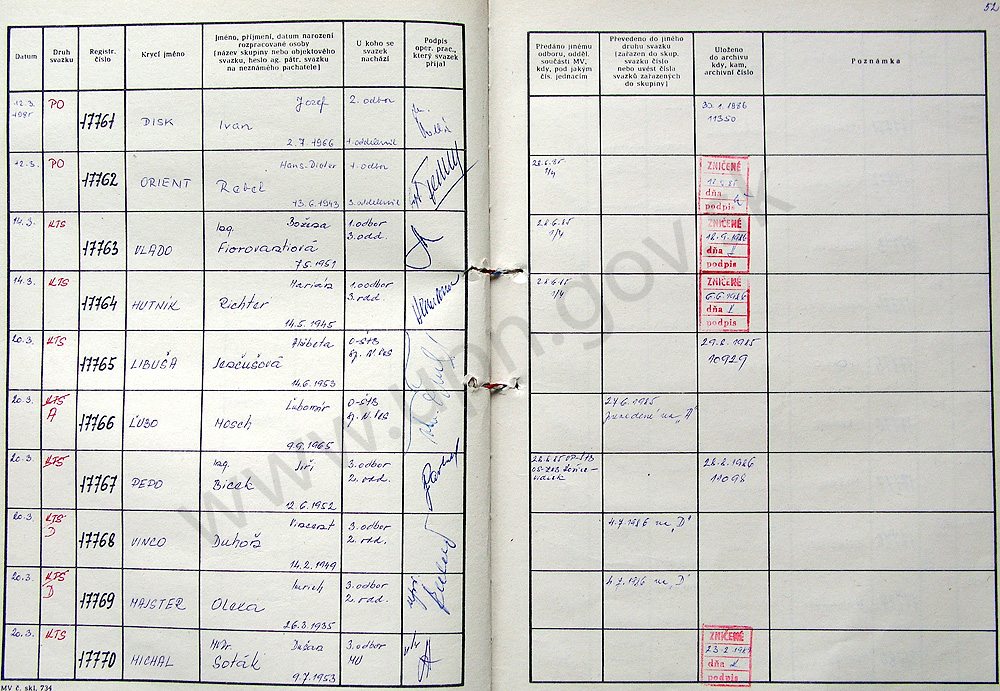 52
Datum
Druh
svazku
Registr.
číslo
Krycí jméno
Jméno, příjmení, datum narození
rozpracované osoby
(název skupiny nebo objektového
svazku, heslo ag. pátr. svazku
na neznámého pachatele)
U koho se
svazek
nachází
Podpis
oper. prac.,
který svazek
přijal)
Předáno jinému
odboru, odděl.
součásti MV,
kdy, pod jakým
čís. jednacím
Převedeno do jiného
druhu svazku
(zařazen do skup.
svazku číslo
nebo uvést čísla
svazků zařazených
do skupiny)
Uloženo
do archivu
kdy, kam,
archivní číslo
Poznámka
12.3.
1985
PO
17761
DISK
Jozef
Ivan
2.7.1966
2. odbor
30.1.1986
11350
12.3.
PO
17762
ORIENT
Hans-Dieter
13.6.1943
1. odbor
28.6.85
1/4
ZNIČENÉ
dňa
podpis
14.3.
KTS
17763
VLADO
Ing.
Božena
Fiorovantiová
7.5.1951
1. odbor
3. odd.
28.6.85
1/4
ZNIČENÉ
18.9.1986
dňa
podpis
14.3.
KTS
17764
HUTNÍK
Marián
Richter
14.5.1945
1. odbor
3. odd.
28.6.85
1/4
ZNIČENÉ
6.6.1986
dňa
podpis
20.3.
KTS
17765
LIBUŠA
Alžbeta
14.6.1953
O-ŠTB
29.8.1985
10929
20.3.
KTS
A
17766
ĽUBO
Ľubomír
Mosch
9.9.1965
O-ŠTB
27.6.1985
zavedené na „A"
20.3.
KTS
17767
PEDO
Ing.
Jiří
Bicek
12.6.1952
3. odbor
2. odd.
28.8.1986
11098
20.3.
KTS
D
17768
VINCO
Vincent
Duhoň
14.2.1949
3. odbor
2. odd.
4.7.1986 na „D"
20.3.
KTS
D
17769
MAJSTER
Imrich
Olexa
26.3.1935
3. odbor
2. odd.
4.7.1986 na „D"
20.3.
KTS
17770
MICHAL
Dušan
Soták
9.7.1953
3. odbor
ZNIČENÉ
dňa
podpis
MV č. skl. 734
www.upn.gov.sk